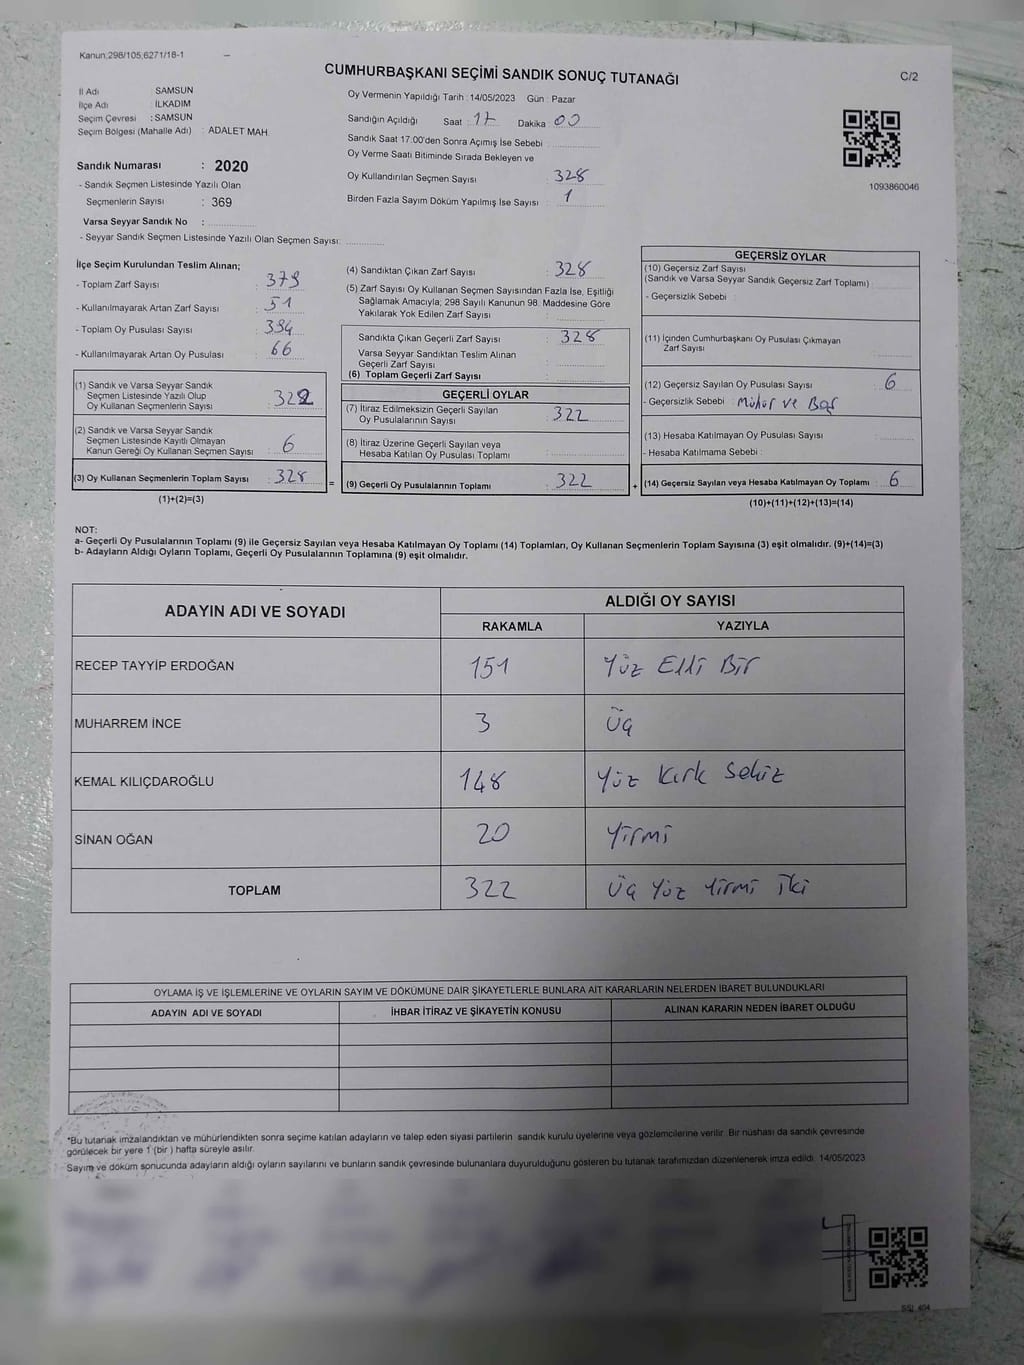 Kanun:298/105,6271/18-1
CUMHURBAŞKANI SEÇİMİ SANDIK SONUÇ TUTANAĞI
C/2
İl Adı : SAMSUN
İlçe Adı : İLKADIM
Seçim Çevresi : SAMSUN
Seçim Bölgesi (Mahalle Adı) : ADALET MAH.
Sandık Numarası : 2020
- Sandık Seçmen Listesinde Yazılı Olan
Seçmenlerin Sayısı : 369
Varsa Seyyar Sandık No :
- Seyyar Sandık Seçmen Listesinde Yazılı Olan Seçmen Sayısı:
Oy Vermenin Yapıldığı Tarih : 14/05/2023 Gün : Pazar
Sandığın Açıldığı Saat : 17 Dakika : 00
Sandık Saat 17.00'den Sonra Açımış İse Sebebi :
Oy Verme Saati Bitiminde Sırada Bekleyen ve
Oy Kullandırılan Seçmen Sayısı : 328
Birden Fazla Sayım Döküm Yapılmış İse Sayısı : 1
1093860046
İlçe Seçim Kurulundan Teslim Alınan;
- Toplam Zarf Sayısı : 379
- Kullanılmayarak Artan Zarf Sayısı : 51
- Toplam Oy Pusulası Sayısı : 394
- Kullanılmayarak Artan Oy Pusulası : 66
(1) Sandık ve Varsa Seyyar Sandık
Seçmen Listesinde Yazılı Olup
Oy Kullanan Seçmenlerin Sayısı : 322
(2) Sandık ve Varsa Seyyar Sandık
Seçmen Listesinde Kayıtlı Olmayan
Kanun Gereği Oy Kullanan Seçmen Sayısı : 6
(3) Oy Kullanan Seçmenlerin Toplam Sayısı : 328
(1)+(2)=(3)
(4) Sandıktan Çıkan Zarf Sayısı : 328
(5) Zarf Sayısı Oy Kullanan Seçmen Sayısından Fazla İse, Eşitliği
Sağlamak Amacıyla; 298 Sayılı Kanunun 98. Maddesine Göre
Yakılarak Yok Edilen Zarf Sayısı :
Sandıkta Çıkan Geçerli Zarf Sayısı : 328
Varsa Seyyar Sandıktan Teslim Alınan
Geçerli Zarf Sayısı :
(6) Toplam Geçerli Zarf Sayısı :
GEÇERLİ OYLAR
(7) İtiraz Edilmeksizin Geçerli Sayılan
Oy Pusulalarının Sayısı : 322
(8) İtiraz Üzerine Geçerli Sayılan veya
Hesaba Katılan Oy Pusulası Toplamı :
= (9) Geçerli Oy Pusulalarının Toplamı : 322
GEÇERSİZ OYLAR
(10) Geçersiz Zarf Sayısı
(Sandık ve Varsa Seyyar Sandık Geçersiz Zarf Toplamı) :
- Geçersizlik Sebebi :
(11) İçinden Cumhurbaşkanı Oy Pusulası Çıkmayan
Zarf Sayısı :
(12) Geçersiz Sayılan Oy Pusulası Sayısı : 6
- Geçersizlik Sebebi : Mühür ve Boş
(13) Hesaba Katılmayan Oy Pusulası Sayısı :
- Hesaba Katılmama Sebebi :
+ (14) Geçersiz Sayılan veya Hesaba Katılmayan Oy Toplamı : 6
(10)+(11)+(12)+(13)=(14)
NOT:
a- Geçerli Oy Pusulalarının Toplamı (9) ile Geçersiz Sayılan veya Hesaba Katılmayan Oy Toplamı (14) Toplamları, Oy Kullanan Seçmenlerin Toplam Sayısına (3) eşit olmalıdır. (9)+(14)=(3)
b- Adayların Aldığı Oyların Toplamı, Geçerli Oy Pusulalarının Toplamına (9) eşit olmalıdır.
ADAYIN ADI VE SOYADI ALDIĞI OY SAYISI
RAKAMLA YAZIYLA
RECEP TAYYİP ERDOĞAN 151 Yüz Elli Bir
MUHARREM İNCE 3 Üç
KEMAL KILIÇDAROĞLU 148 Yüz Kırk Sekiz
SİNAN OĞAN 20 Yirmi
TOPLAM 322 Üç Yüz Yirmi İki
OYLAMA İŞ VE İŞLEMLERİNE VE OYLARIN SAYIM VE DÖKÜMÜNE DAİR ŞİKAYETLERLE BUNLARA AİT KARARLARIN NELERDEN İBARET BULUNDUKLARI
ADAYIN ADI VE SOYADI İHBAR İTİRAZ VE ŞİKAYETİN KONUSU ALINAN KARARIN NEDEN İBARET OLDUĞU
*Bu tutanak imzalandıktan ve mühürlendikten sonra seçime katılan adayların ve talep eden siyasi partilerin sandık kurulu üyelerine veya gözlemcilerine verilir. Bir nüshası da sandık çevresinde
görülecek bir yere 1 (bir ) hafta süreyle asılır.
Sayım ve döküm sonucunda adayların aldığı oyların sayılarını ve bunların sandık çevresinde bulunanlara duyurulduğunu gösteren bu tutanak tarafımızdan düzenlenerek imza edildi. 14/05/2023